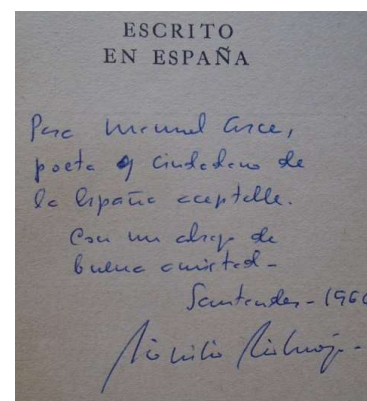 ESCRITO
EN ESPAÑA
Para Manuel Arce,
poeta y ciudadano de
la España aceptable.
Con un abrazo de
buena amistad-
Santander-196
Dionisio Ridruejo-